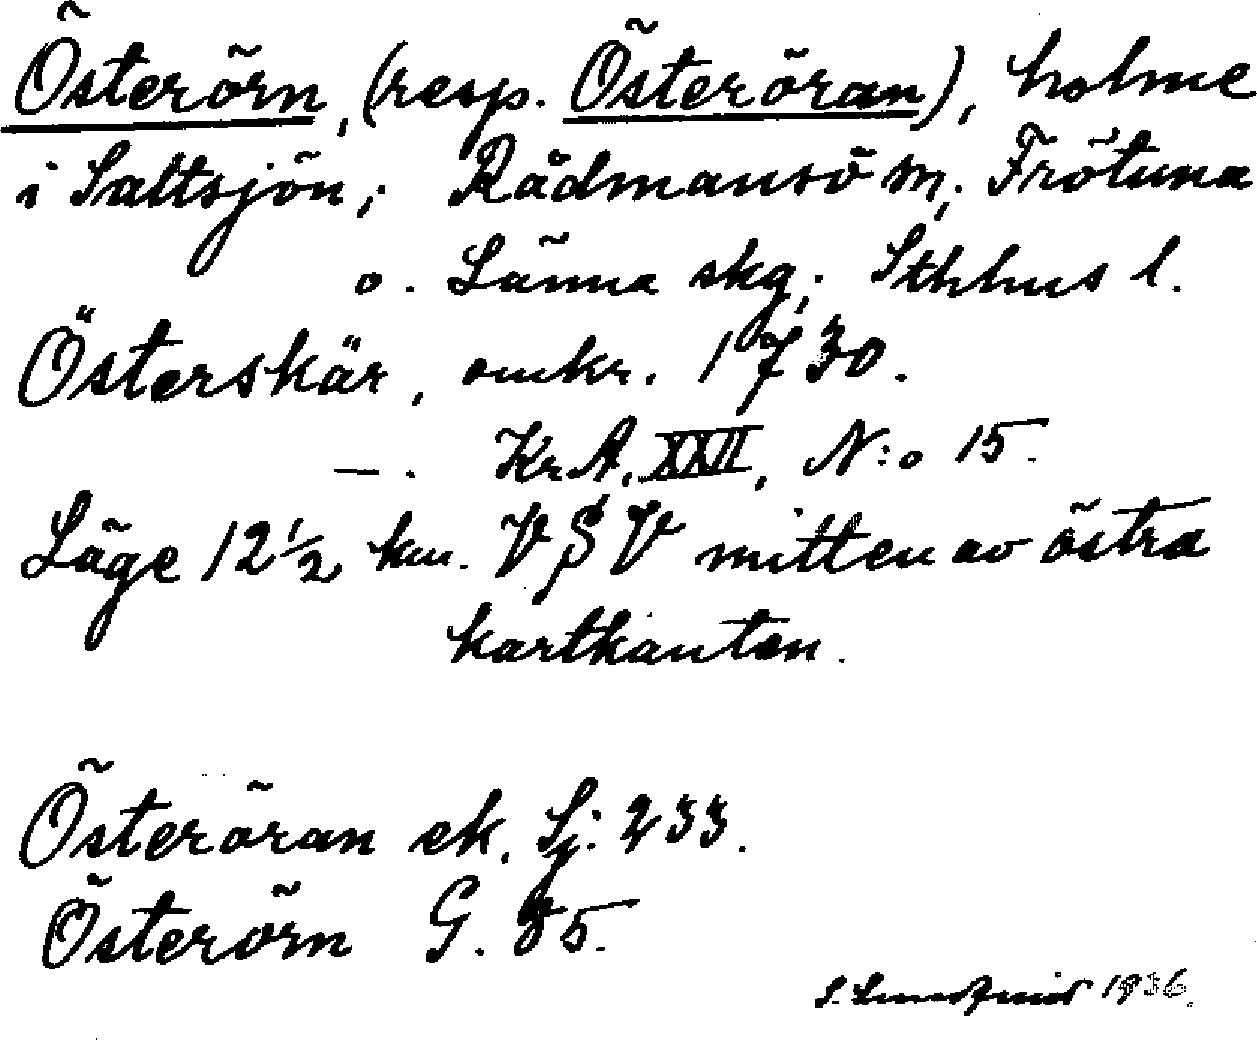 Österörn, (resp. Österöran), holme
i Saltsjön; Rådmansö m, Frötuna
o. Länna skg; Sthlms l.
Österskär, omkr. 1730.
—. KrA, XXII, N:o 15.
Läge 12 1/2 km. VSV mitten av östra
kartkanten.
Österöran ek. Sj: 233.
Österörn G. 85.
S. 1936.